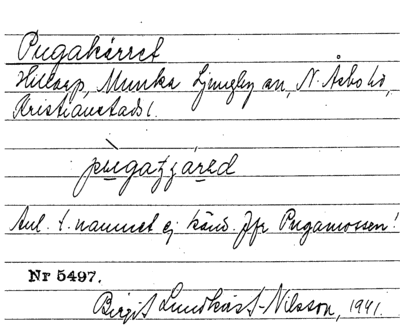 Pugakärret
Hillarp, Munka Ljungby sn, N. Åsbo hd,
Kristianstads l.
Anl. t. namnet ej känd. Jfr Pugamossen!
Nr 5497.
Birgit Lundkvist-Nilsson, 1941.